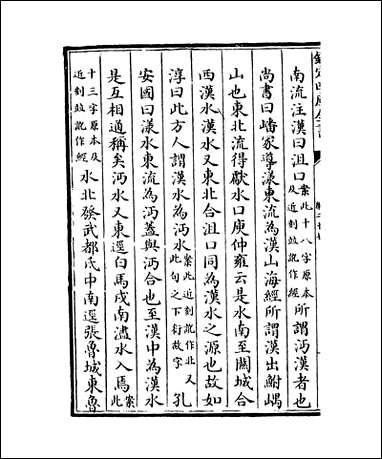 欽定四庫全書
南流注漢曰沮口案此十八字原本及近刻竝訛作經所謂沔漢者也
尚書曰嶓冢導漾東流為漢山海經所謂漢出鮒嵎
山也東北流得獻水口庾仲雍云是水南至關城合
西漢水漢水又東北合沮口同為漢水之源也故如
淳曰此方人謂漢水為沔水案此近刻訛作北又此句之下衍故字孔
安國曰漾水東流為沔蓋與沔合也至漢中為漢水
是互相通稱矣沔水又東逕白馬戍南濜水入焉案此
十三字原本及近刻竝訛作經水北發武都氐中南逕張魯城東魯